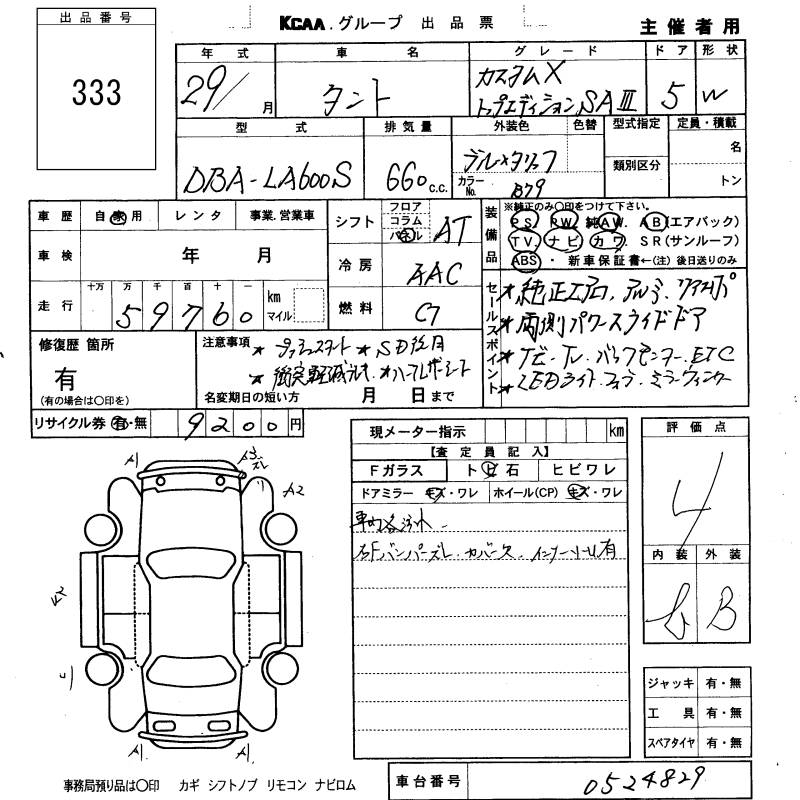 出品番号
333
KCAA.グループ 出品票
主催者用
年式 車名 グレード ドア 形状
29/ 月 タント カスタムX トップエディションSAⅢ 5 W
型式 排気量 外装色 色替 型式指定 定員・積載
DBA-LA600S 660 c.c. カラーNo. B79 類別区分 名 トン
車歴 自家用 レンタ 事業.営業車
車検 年 月
走行 十万 万 千 百 十 一 km マイル
59760
シフト フロア コラム パネル AT
冷房 AAC
燃料
装備品 ※純正のみ○印をつけて下さい。
PS. PW. 純AW. AB(エアバック)
TV. ナビ カワ SR(サンルーフ)
ABS・ 新車保証書←(注)後日送りのみ
セールスポイント
★純正エアロ、アルミ、リアスポ
★両側パワースライドドア
★ナビ・TV・バックモニター・ETC
★LEDライト・フォグ・ミラーウィンカー
修復歴 箇所
有
(有の場合は○印を)
注意事項 ★プッシュスタート ★SD後日
★ハーフレザーシート
名変期日の短い方 月 日まで
リサイクル券 有・無 9200円
現メーター指示 km
【査定員記入】
Fガラス ト ビ 石 ヒビワレ
ドアミラー キズ・ワレ ホイール(CP) キズ・ワレ
車内各汚れ
右Fバンパーズレ・カバーズレ
評価点
4
内装 外装
B
A1 A3 ズレ
A2
A2
A1 A1
ジャッキ 有・無
工具 有・無
スペアタイヤ 有・無
事務局預り品は○印 カギ シフトノブ リモコン ナビロム
車台番号 0524829